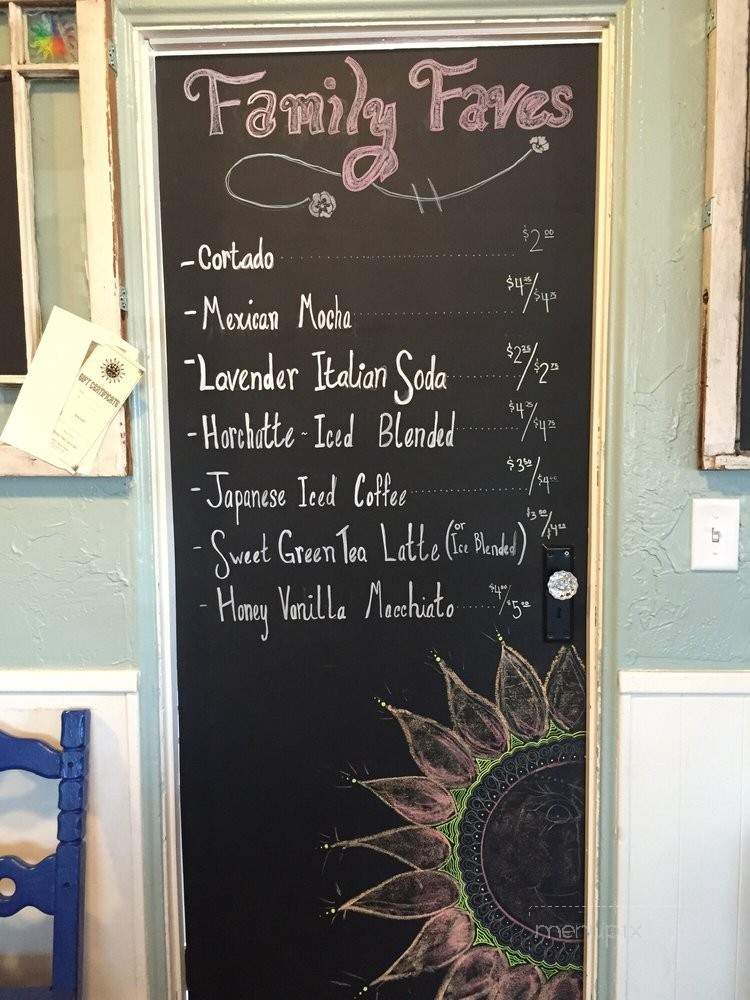 Family Faves
- Cortado $2.00
- Mexican Mocha $4.25/$4.75
- Lavender Italian Soda $2.25/$2.75
- Horchatte ~ Iced Blended $4.25/$4.75
- Japanese Iced Coffee $3.50/$4.00
- Sweet Green Tea Latte (or Ice Blended) $3.00/$4.00
- Honey Vanilla Macchiato $4.00/$5.00
GIFT CERTIFICATE
menupix